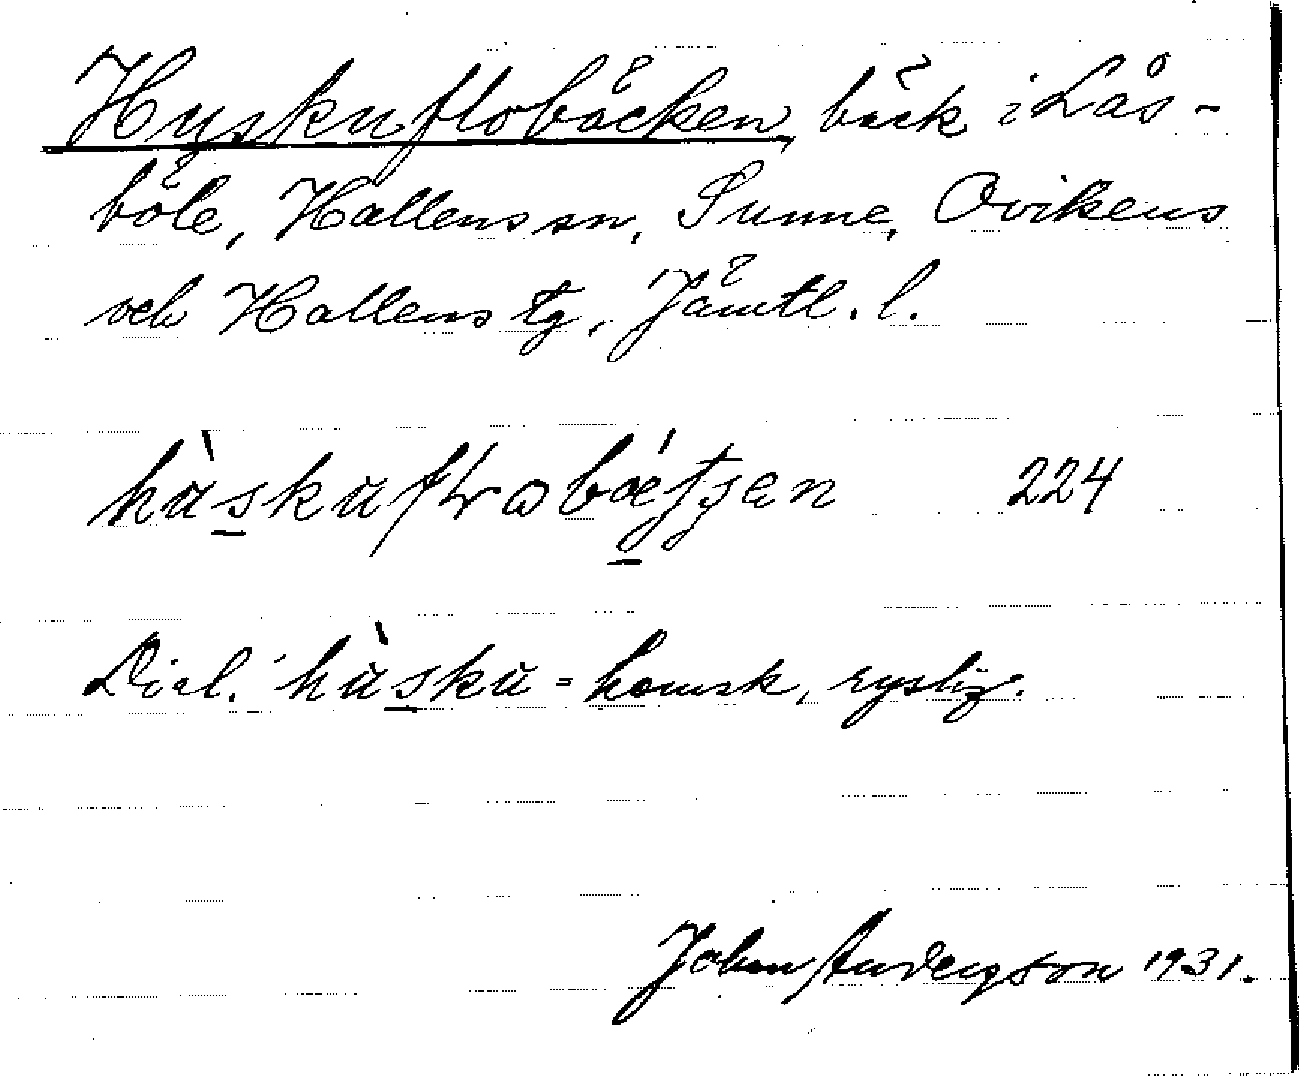 Hyskuflobäcken, bäck i Lås-
böle, Hallens sn, Sunne, Ovikens
och Hallens tg, Jämtl. l.
hùskuflωbǽtʃen 224
Dial. hùsku = hemsk, ryslig.
John Andersson 1931.